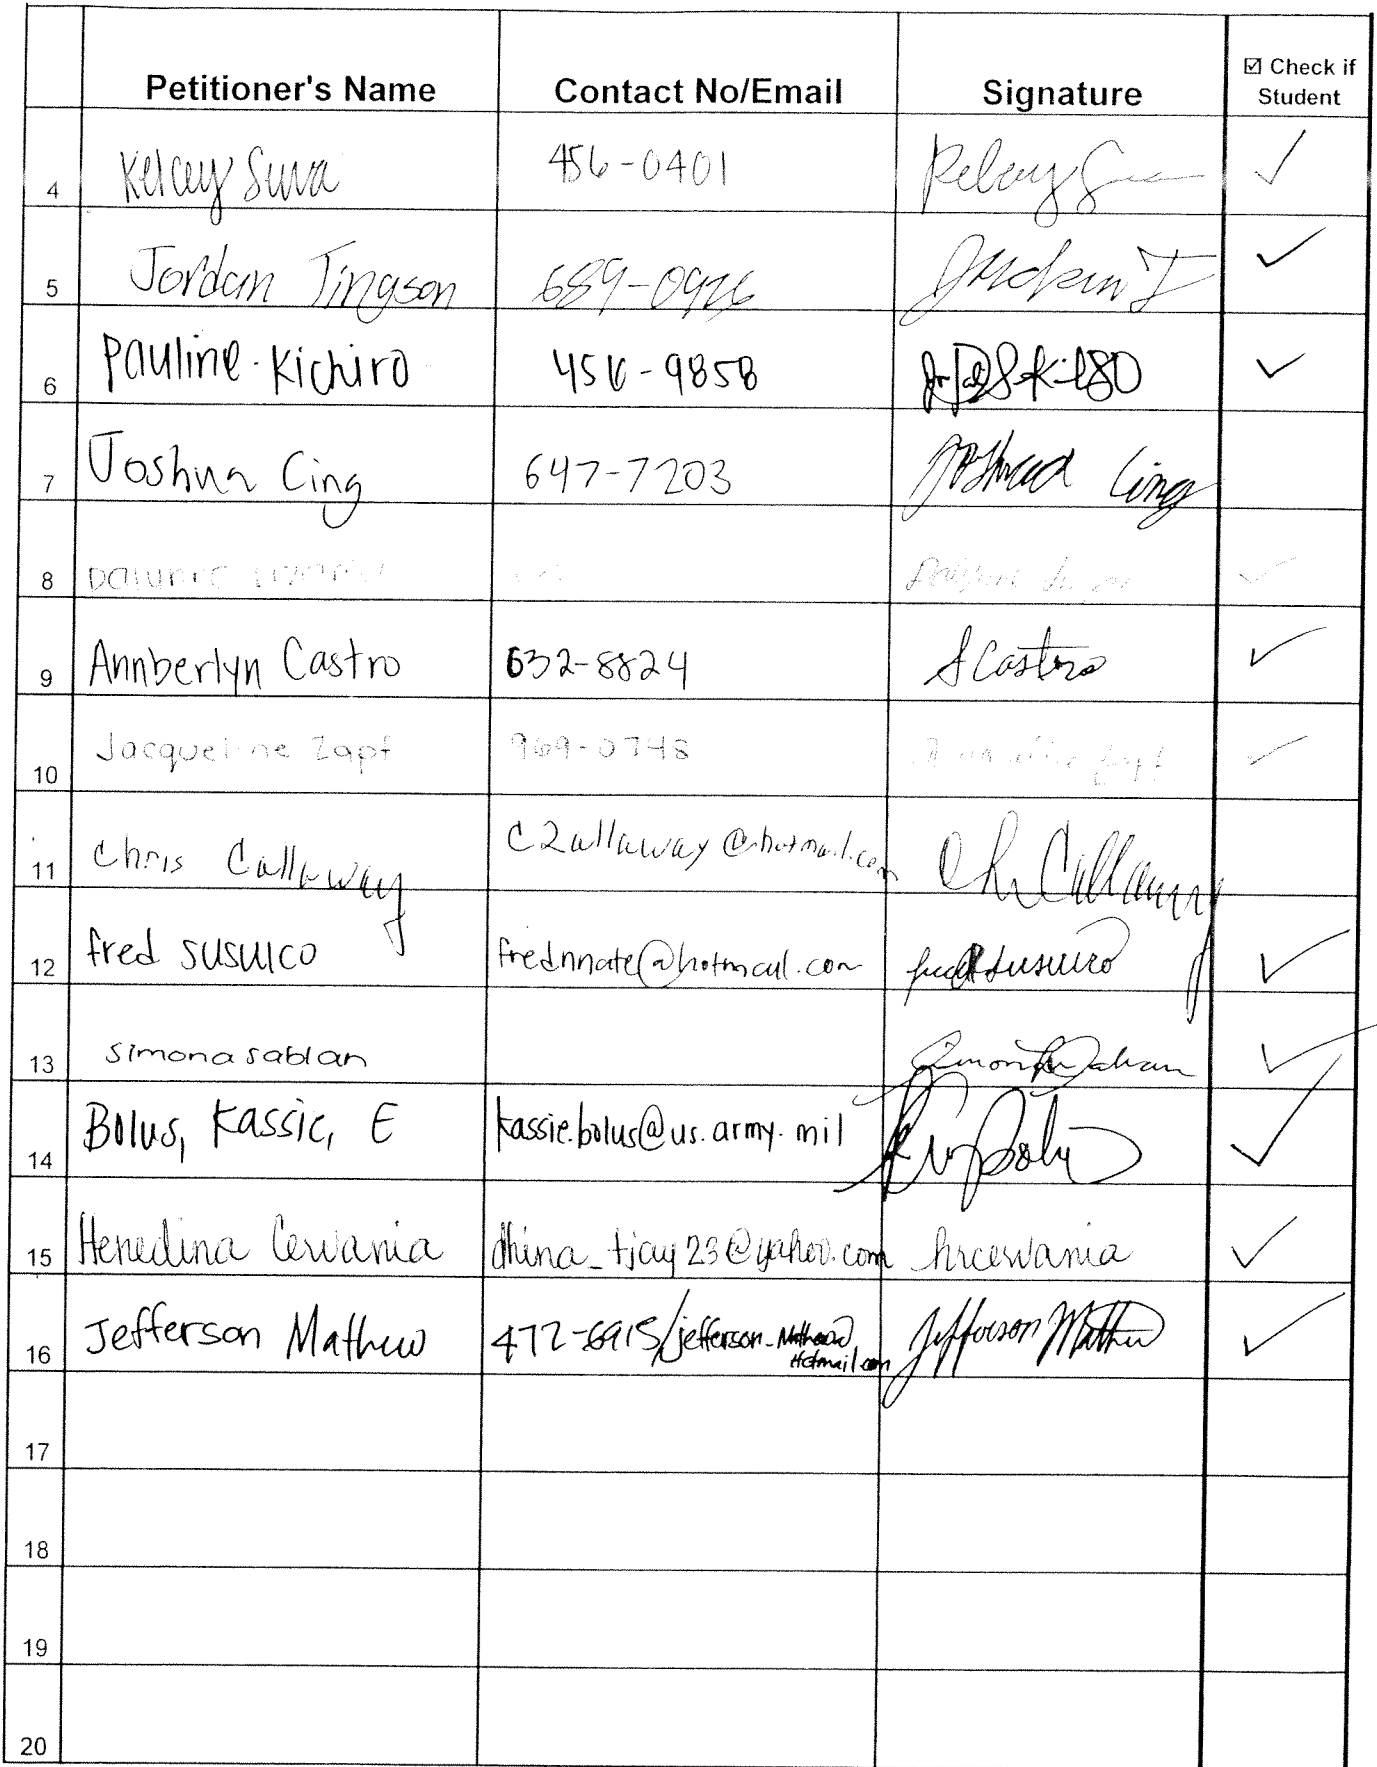 Petitioner's Name Contact No/Email Signature ☑ Check if Student
4 Kelcey Suva 456-0401 ✓
5 Jordan Tingson 689-0926 ✓
6 Pauline Kichiro 456-9858 ✓
7 Joshua Cing 647-7203 Joshua Cing
8 ✓
9 Annberlyn Castro 632-8824 A Castro ✓
10 Jacqueline Zapf 969-0748 ✓
11 Chris Callaway c2allaway@hotmail.com Chr Callaway
12 fred susuico frednnate@hotmail.com fred susuico ✓
13 simona sablan ✓
14 Bolus, Kassie, E kassie.bolus@us.army.mil ✓
15 Henedina Cervania dhina_tjay23@yahoo.com hrcervania ✓
16 Jefferson Mathew 472-6915/jefferson_ Jefferson Mathew ✓
Hotmail.com
17
18
19
20